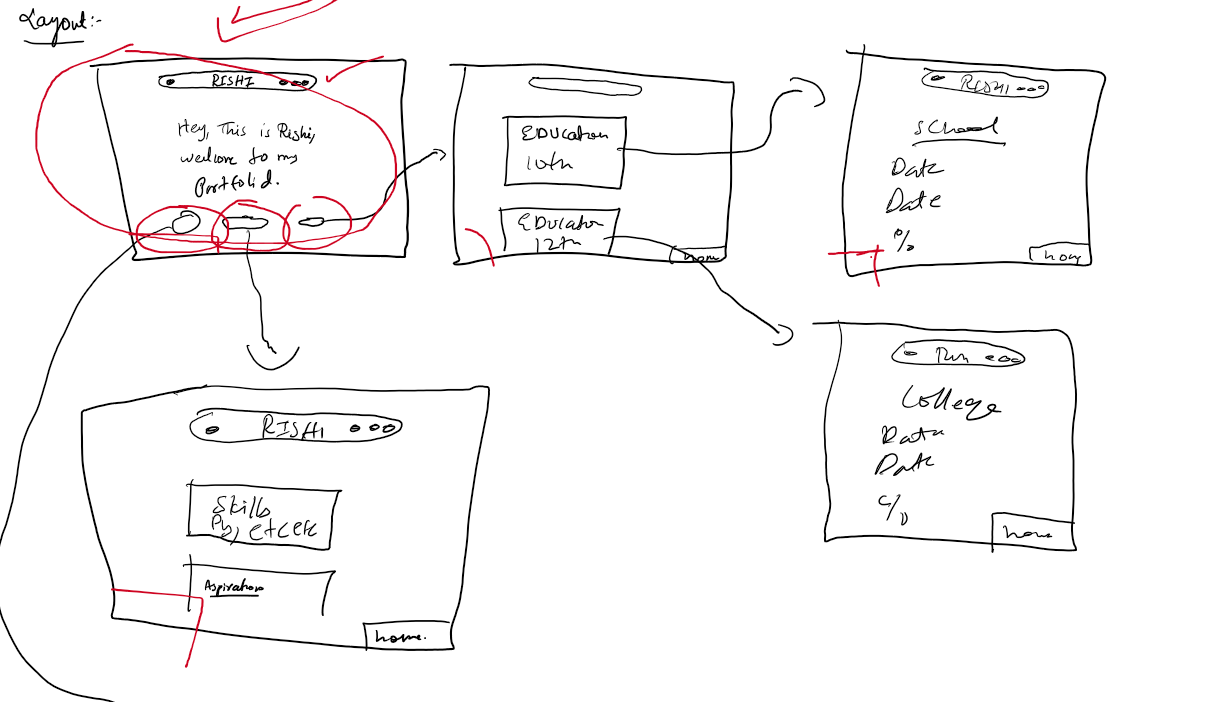 Layout:-
RISHI
Hey, This is Rishi,
welcome to my
Portfolio.
EDUcation
10th
EDUcation
12th
home
RISHI
School
Date
Date
%
home
College
Data
Date
home
RISHI
Skills
Py, etc etc
Aspirations
home.